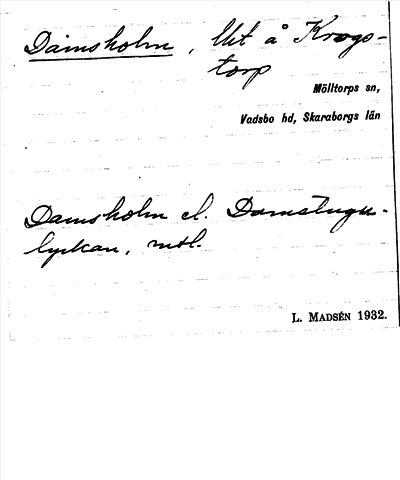 Damsholm, lht å Krogs-
torp
Mölltorps sn,
Vadsbo hd, Skaraborgs län
Damsholm el. Damstugu-
lyckan,
L. MADSÉN 1932.